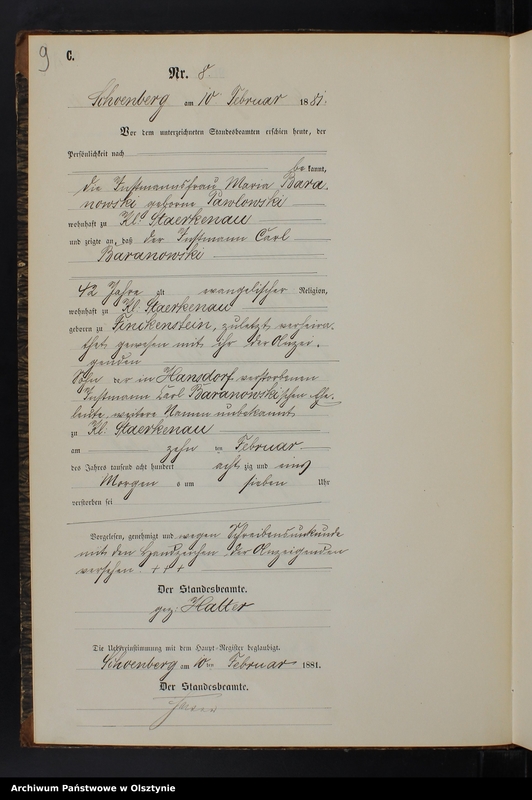 9
C.
Nr. 8
Schoenberg am 10 Februar 1881.
Vor dem unterzeichneten Standesbeamten erschien heute, der
Persönlichkeit nach
bekannt,
die Instmannsfrau Maria Bara-
nowski geborne Pawlowski
wohnhaft zu Kl. Staerkenau
und zeigte an, daß der Instmann Carl
Baranowski
42 Jahre alt evangelischer Religion,
wohnhaft zu Kl. Staerkenau
geboren zu Finckenstein, zuletzt verheira-
thet gewesen mit ihr der Anzei-
genden
Sohn der in Hansdorf verstorbenen
Instmann Carl Baranowskischen Ehe-
leute, weitere Namen unbekannt
zu Kl: Staerkenau
am zehn ten Februar
des Jahres tausend acht hundert achtzig und eins
Morgens um sieben Uhr
verstorben sei
Vorgelesen, genehmigt und wegen Schreibensunkunde
mit den Handzeichen der Anzeigenden
versehen. + + +
Der Standesbeamte.
gez: Halter
Die Uebereinstimmung mit dem Haupt-Register beglaubigt.
Schoenberg am 10ten Februar 1881.
Der Standesbeamte.
Archiwum Państwowe w Olsztynie